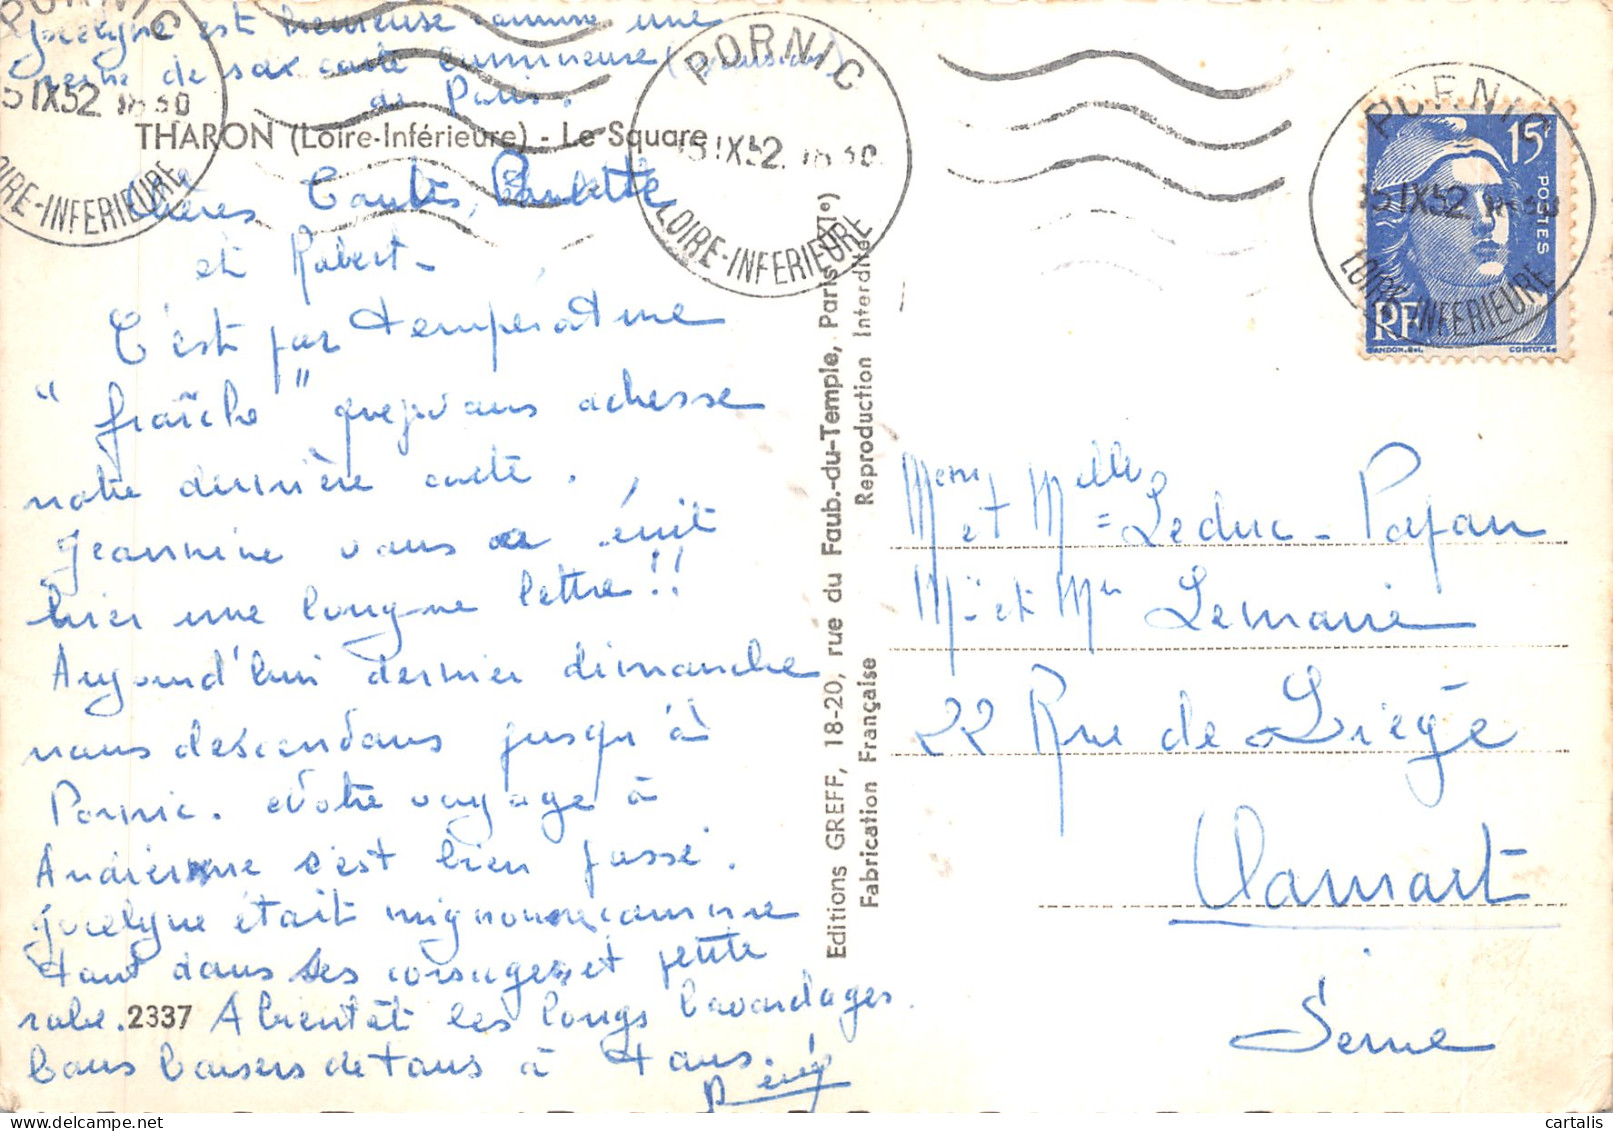 Jocelyne est heureuse comme une
reine de sa carte lumineuse
de Paris.
THARON (Loire-Inférieure) - Le Square
Chères Tantes, Paulette
et Robert -
C'est par température
"fraîche" que je vous adresse
notre dernière carte.
Jeannine vous a écrit
hier une longue lettre!!
Aujourd'hui dernier dimanche
nous descendons jusqu'à
Pornic. Notre voyage à
s'est bien passé.
Jocelyne était mignonne comme
tout dans ses corsages et petite
robe. 2337 A bientôt les longs bavardages.
Bons baisers de tous à tous.
René
Editions GREFF, 18-20, rue du Faub.-du-Temple, Paris (XIe)
Fabrication Française Reproduction Interdite
PORNIC
15 IX 52 18 30
LOIRE-INFERIEURE
PORNIC
15 IX 52 18 30
LOIRE-INFERIEURE
PORNIC
15 IX 52 18 30
LOIRE-INFERIEURE
15F
POSTES
RF
GANDON.Del. CORTOT.Sc
Mesm et Melles Leduc-Papan
Mr et Mme Lemarie
22 Rue de Liège
Clamart
Seine
cartalis